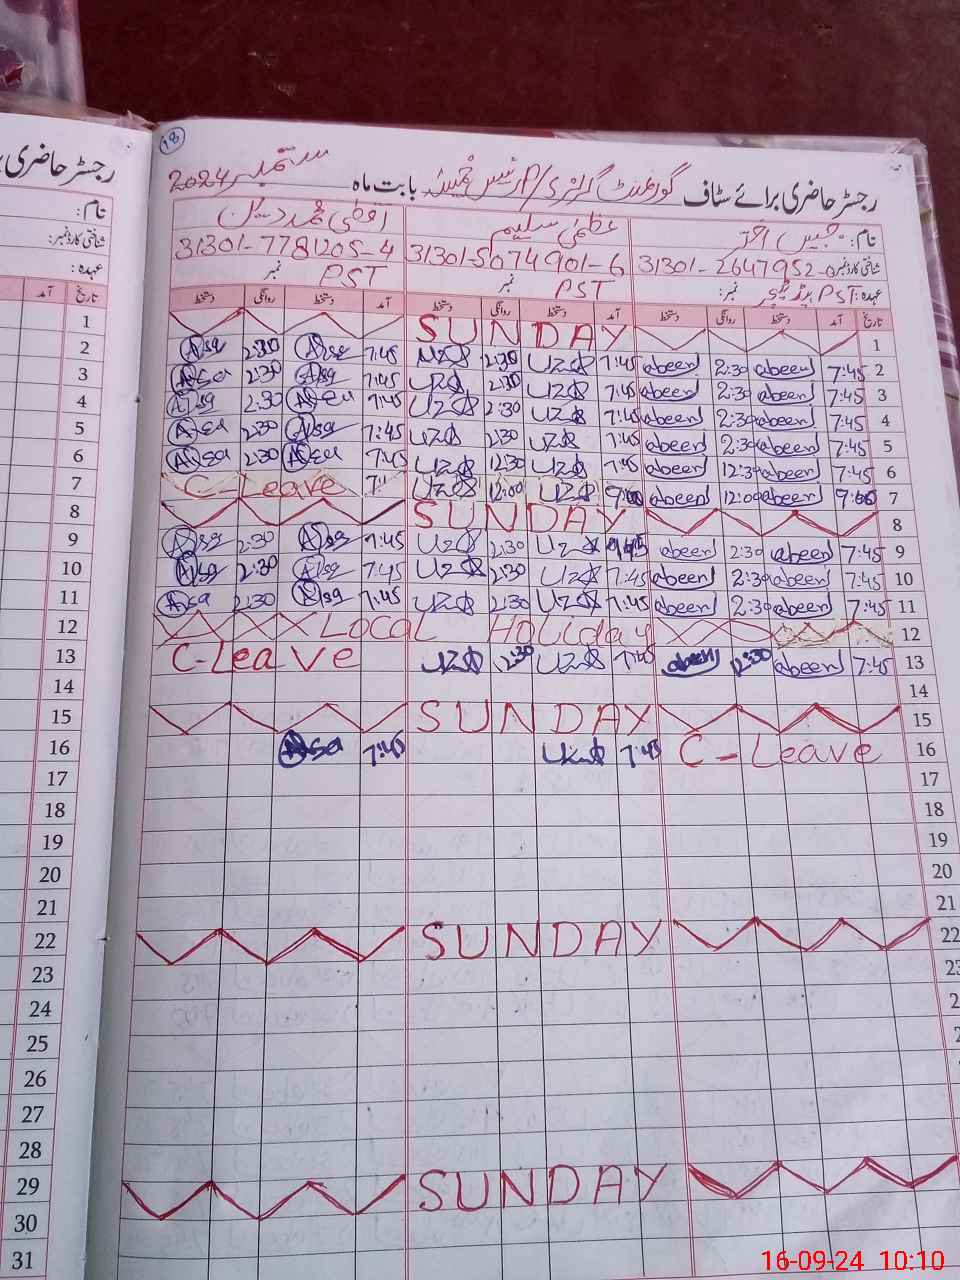 18
رجسٹر حاضری برائے سٹاف گورنمنٹ گرلز پرائمری بابت ماہ ستمبر 2024
رجسٹر حاضری
نام: عظمیٰ سلیم
شناختی کارڈ نمبر: 31301-2647952-0 31301-5074901-6 31301-7781205-4
عہدہ: PST نمبر: PST نمبر PST نمبر
تاریخ آمد دستخط روانگی دستخط آمد دستخط روانگی دستخط آمد دستخط روانگی دستخط
نام:
شناختی کارڈ نمبر:
عہدہ:
تاریخ آمد
1 SUNDAY 1
2 Asa 2:30 Asa 7:45 UZ 2:30 UZ 7:45 abeer 2:30 abeer 7:45 2
3 Asa 2:30 Asa 7:45 UZ 2:30 UZ 7:45 abeer 2:30 abeer 7:45 3
4 Asa 2:30 Asa 7:45 UZ 2:30 UZ 7:45 abeer 2:30 abeer 7:45 4
5 Asa 2:30 Asa 7:45 UZ 2:30 UZ 7:45 abeer 2:30 abeer 7:45 5
6 Asa 2:30 Asa 7:45 UZ 12:30 UZ 7:45 abeer 12:30 abeer 7:45 6
7 C-Leave UZ 12:00 UZ 9:00 abeer 12:00 abeer 9:00 7
8 SUNDAY 8
9 Asa 2:30 Asa 7:45 UZ 2:30 UZ 7:45 abeer 2:30 abeer 7:45 9
10 Asa 2:30 Asa 7:45 UZ 2:30 UZ 7:45 abeer 2:30 abeer 7:45 10
11 Asa 2:30 Asa 7:45 UZ 2:30 UZ 7:45 abeer 2:30 abeer 7:45 11
12 LOCAL Holiday 12
13 C-Leave UZ 12:30 UZ 7:45 abeer 12:30 abeer 7:45 13
14 14
15 SUNDAY 15
16 Asa 7:45 UZ 7:45 C-Leave 16
17 17
18 18
19 19
20 20
21 21
22 SUNDAY 22
23 23
24
25
26
27
28
29 SUNDAY
30
31
16-09-24 10:10